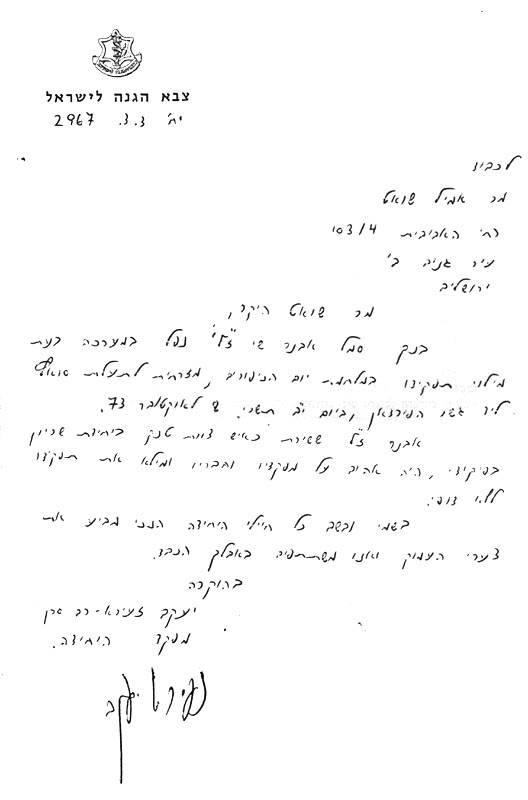 צבא הגנה לישראל
יח' ד.צ. 2967
לכבוד
מר אמיל שואט
רח' האביבית 103/4
עיר גנים ב'
ירושלים
מר שואט היקר,
בנך סמל אבנר שי ז"ל נפל במערכה בעת
מילוי תפקידו במלחמת יום הכיפורים, מזרחית לתעלת סואץ
ליד גשר הפירדאן, ביום י"ב תשרי 8 לאוקטובר 73.
אבנר ז"ל ששירת כאיש צוות טנק ביחידת שריון
בפיקודי, היה אהוב על מפקדיו וחבריו ומילא את תפקידו
ללא דופי.
בשמי ובשם כל חיילי היחידה הנני מביע את
צערי העמוק ואנו משתתפים באבלך הכבד.
בהוקרה
יעקב זעירא - רב סרן
מפקד היחידה.